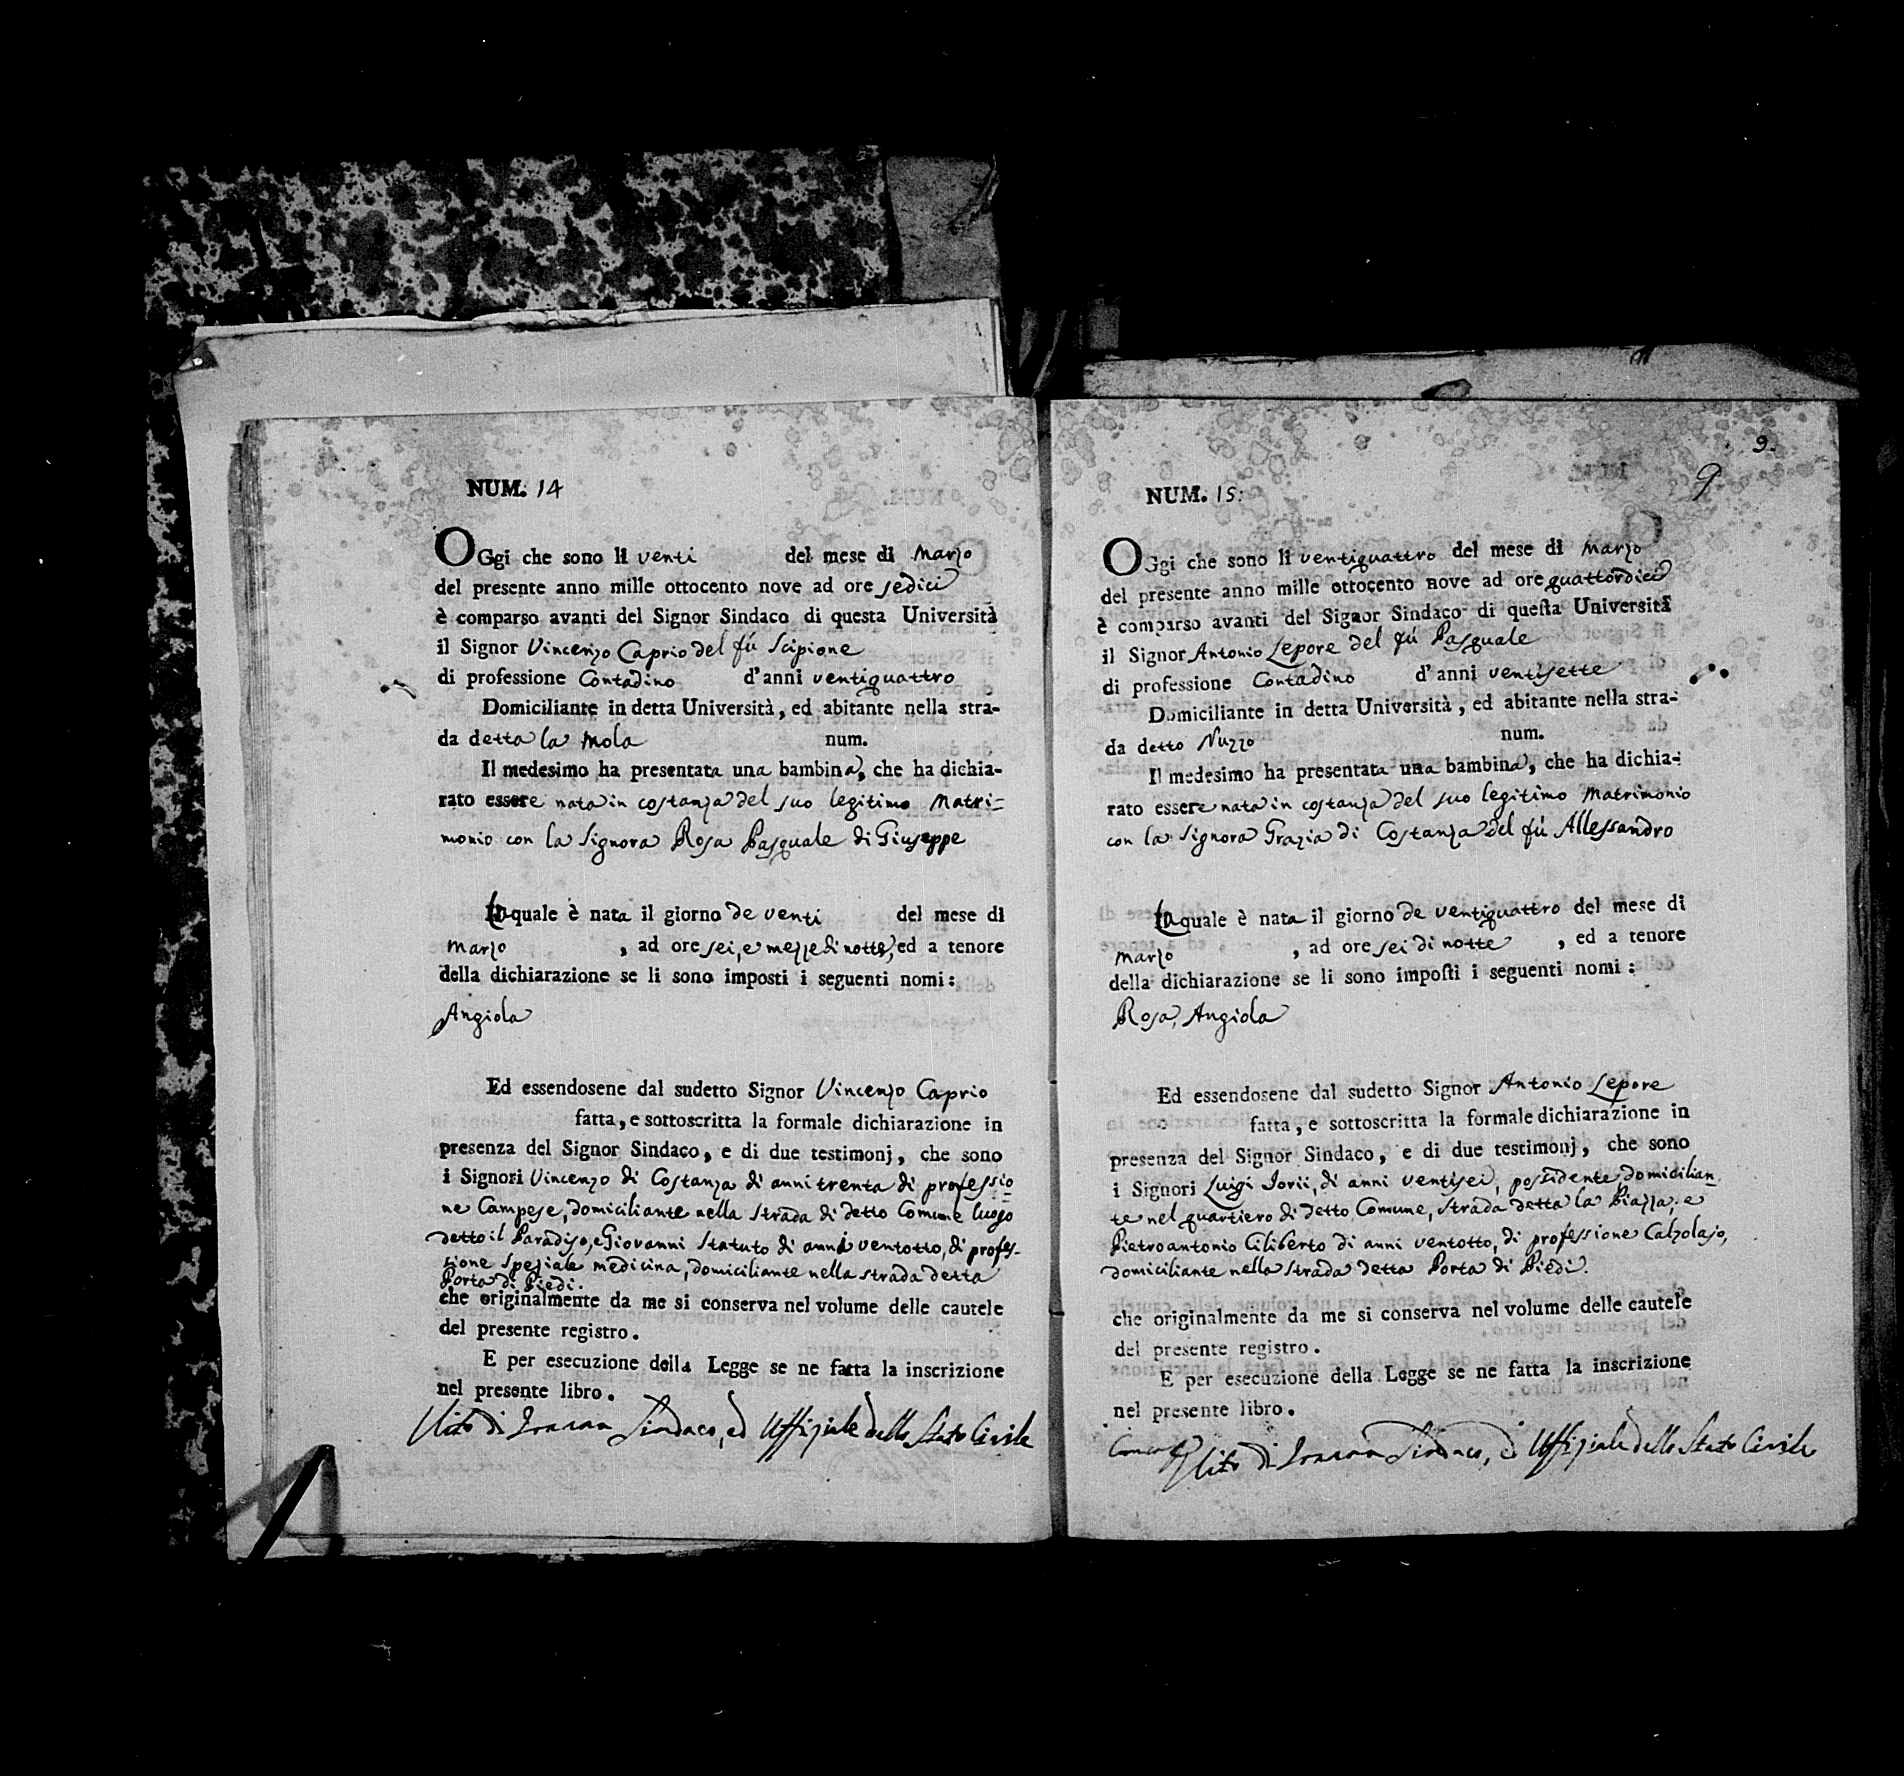 NUM. 14
OGgi che sono li venti del mese di Marzo
del presente anno mille ottocento nove ad ore sedici
è comparso avanti del Signor Sindaco di questa Università
il Signor Vincenzo Caprio del fú Scipione
di professione Contadino d'anni ventiquattro
Domiciliante in detta Università, ed abitante nella stra-
da detta la Mola num.
Il medesimo ha presentata una bambina, che ha dichia-
rato essere nata in costanza del suo legitimo Matri=
monio con la Signora Rosa Pasquale di Giuseppe
La quale è nata il giorno de venti del mese di
Marzo , ad ore sei, e mezze di notte, ed a tenore
della dichiarazione se li sono imposti i seguenti nomi:
Angiola
Ed essendosene dal sudetto Signor Vincenzo Caprio
fatta, e sottoscritta la formale dichiarazione in
presenza del Signor Sindaco, e di due testimonj, che sono
i Signori Vincenzo di Costanza di anni trenta di professio=
ne Campese, domiciliante nella Strada di detto Comune luogo
detto il Paradiso, e Giovanni Statuto di anni ventotto, di profes-
sione speziale medicina, domiciliante nella strada detta
Porta di Piedi.
che originalmente da me si conserva nel volume delle cautele
del presente registro.
E per esecuzione della Legge se ne fatta la inscrizione
nel presente libro.
Vito di Sindaco, ed Uffiziale dello Stato Civile
9.
9
NUM. 15.
OGgi che sono li ventiquattro del mese di Marzo
del presente anno mille ottocento nove ad ore quattordici
è comparso avanti del Signor Sindaco di questa Università
il Signor Antonio Lepore del fú Pasquale
di professione Contadino d'anni ventisette
Domiciliante in detta Università, ed abitante nella stra-
da detto Nuzzo num.
Il medesimo ha presentata una bambina, che ha dichia-
rato essere nata in costanza del suo legitimo Matrimonio
con la Signora Grazia di Costanza del fú Allessandro
La quale è nata il giorno de ventiquattro del mese di
Marzo , ad ore sei di notte , ed a tenore
della dichiarazione se li sono imposti i seguenti nomi:
Rosa, Angiola
Ed essendosene dal sudetto Signor Antonio Lepore
fatta, e sottoscritta la formale dichiarazione in
presenza del Signor Sindaco, e di due testimonj, che sono
i Signori Luigi Iorii, di anni ventisei, possidente, domicilian-
te nel quartiero di detto Comune, strada detta la Piazza; e
Pietroantonio Ciliberto di anni ventotto, di professione Calzolajo,
domiciliante nella strada detta Porta di Piedi.
che originalmente da me si conserva nel volume delle cautele
del presente registro.
E per esecuzione della Legge se ne fatta la inscrizione
nel presente libro.
Vito di Sindaco, ed Uffiziale dello Stato Civile